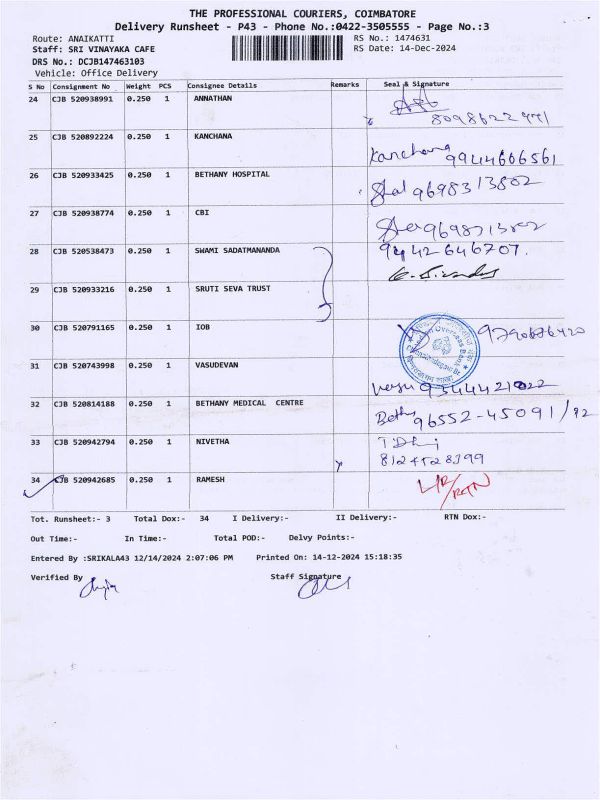 THE PROFESSIONAL COURIERS, COIMBATORE
Delivery Runsheet - P43 - Phone No.:0422-3505555 - Page No.:3
Route: ANAIKATTI RS No.: 1474631
Staff: SRI VINAYAKA CAFE RS Date: 14-Dec-2024
DRS No.: DCJB147463103
Vehicle: Office Delivery
S No Consignment No Weight PCS Consignee Details Remarks Seal & Signature
24 CJB 520938991 0.250 1 ANNATHAN
25 CJB 520892224 0.250 1 KANCHANA Kanchana 9944606561
26 CJB 520933425 0.250 1 BETHANY HOSPITAL 9698313802
27 CJB 520938774 0.250 1 CBI
28 CJB 520538473 0.250 1 SWAMI SADATMANANDA 9442646707.
29 CJB 520933216 0.250 1 SRUTI SEVA TRUST
30 CJB 520791165 0.250 1 IOB
31 CJB 520743998 0.250 1 VASUDEVAN
32 CJB 520814188 0.250 1 BETHANY MEDICAL CENTRE 96552-45091/92
33 CJB 520942794 0.250 1 NIVETHA
34 CJB 520942685 0.250 1 RAMESH
Tot. Runsheet:- 3 Total Dox:- 34 I Delivery:- II Delivery:- RTN Dox:-
Out Time:- In Time:- Total POD:- Delvy Points:-
Entered By :SRIKALA43 12/14/2024 2:07:06 PM Printed On: 14-12-2024 15:18:35
Verified By Staff Signature